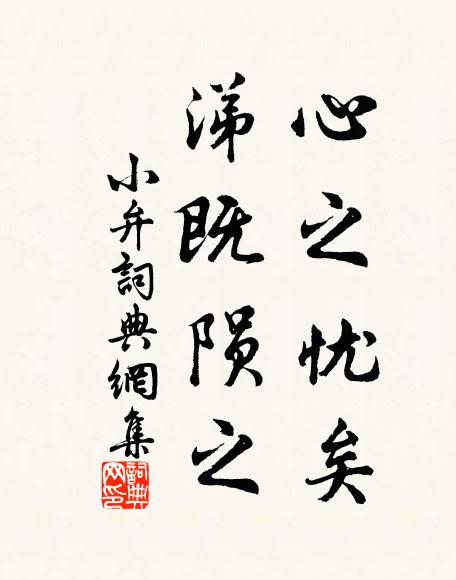 心之忧矣
涕既陨之
小弁詞典網集
詞典
网印